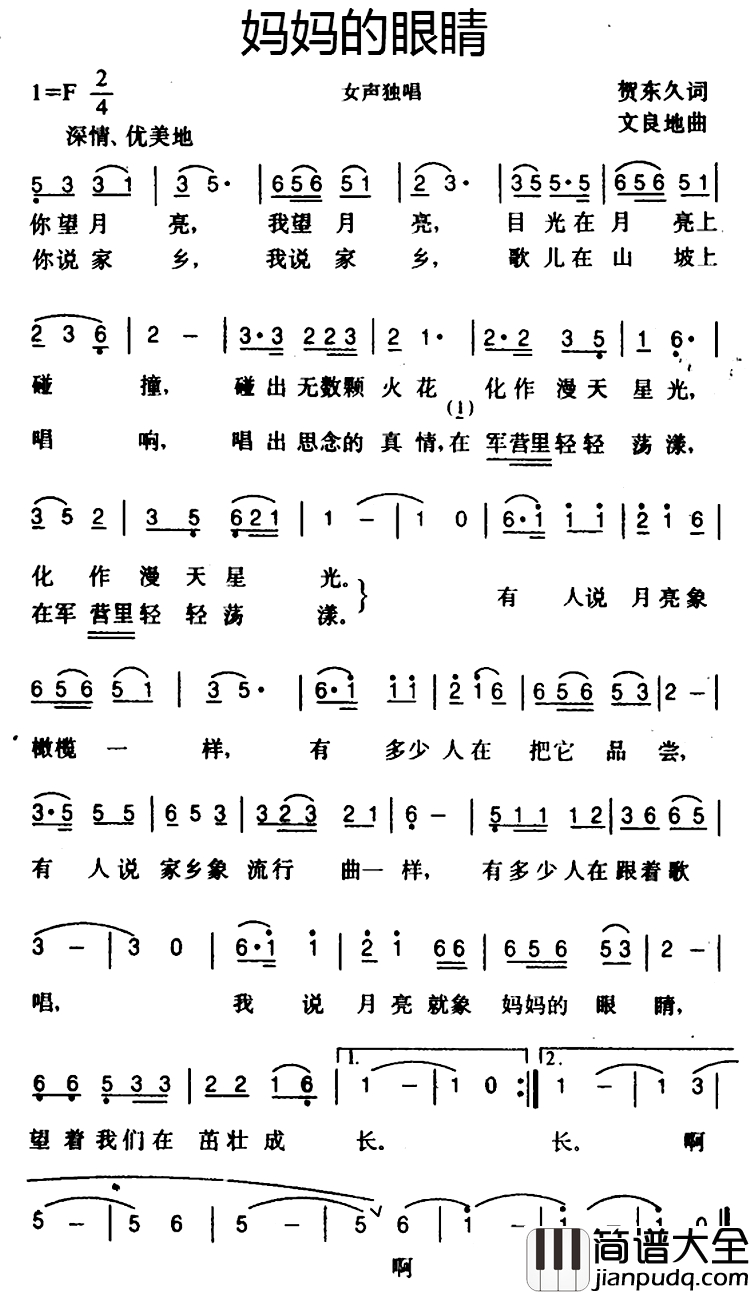 妈妈的眼睛
1=F 2/4 女声独唱 贺东久词
深情、优美地 文良地曲
5 3 3 1 | 3 5· | 6 5 6 5 1 | 2 3· | 3 5 5·5 | 6 5 6 5 1 |
你望月 亮, 我望月 亮, 目光在月 亮上
你说家 乡, 我说家 乡, 歌儿在山 坡上
2 3 6 | 2 － | 3·3 2 2 3 | 2 1· | 2·2 3 5 | 1 6· |
碰 撞, 碰出无数颗火花 化作漫天星光,
(1)
唱 响, 唱出思念的真情,在 军营里轻轻荡漾,
3 5 2 | 3 5 6 2 1 | 1 － | 1 0 | 6·i i i | 2 i 6 |
化作漫天星 光。 有 人说月亮象
在军营里轻轻荡 漾。
6 5 6 5 1 | 3 5· | 6·i i i | 2 i 6 | 6 5 6 5 3 | 2 － |
橄榄一 样, 有 多少人在把它品尝,
3·5 5 5 | 6 5 3 | 3 2 3 2 1 | 6 － | 5 1 1 1 2 | 3 6 6 5 |
有 人说家乡象流行 曲一样, 有多少人在跟着歌
3 － | 3 0 | 6·i i | 2 i 6 6 | 6 5 6 5 3 | 2 － |
唱, 我 说月亮就象妈妈的眼睛,
6 6 5 3 3 | 2 2 1 6 | 1. 1 － | 1 0 :‖ 2. 1 － | 1 3 |
望着我们在茁壮成 长。 长。 啊
5 － | 5 6 | 5 － | 5 ∨ 6 | i － | i － | i － | i 0 ‖
啊
简谱大全
jianpudq.com